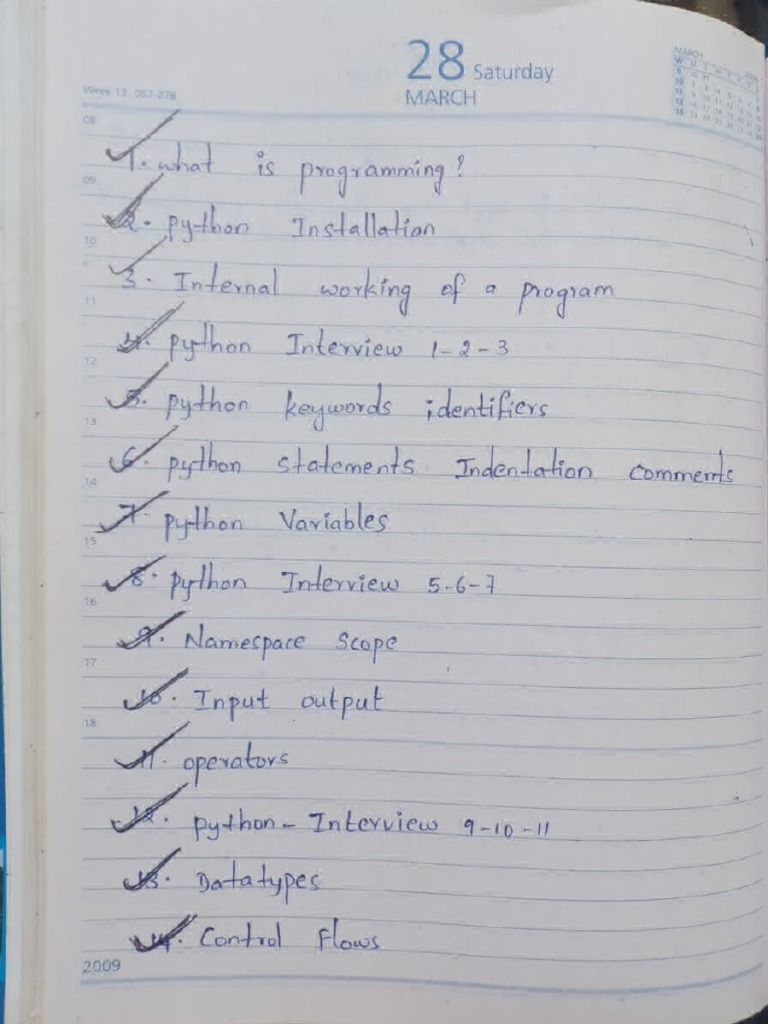 28 Saturday
MARCH
Week 13 087-278
MARCH
08
1. what is programming?
09
2. python Installation
10
3. Internal working of a program
11
4. python Interview 1-2-3
12
5. python keywords identifiers
13
6. python statements Indentation comments
14
7. python Variables
15
8. python Interview 5-6-7
16
9. Namespace Scope
17
10. Input output
18
11. operators
12. python - Interview 9-10-11
13. Datatypes
14. Control Flows
2009